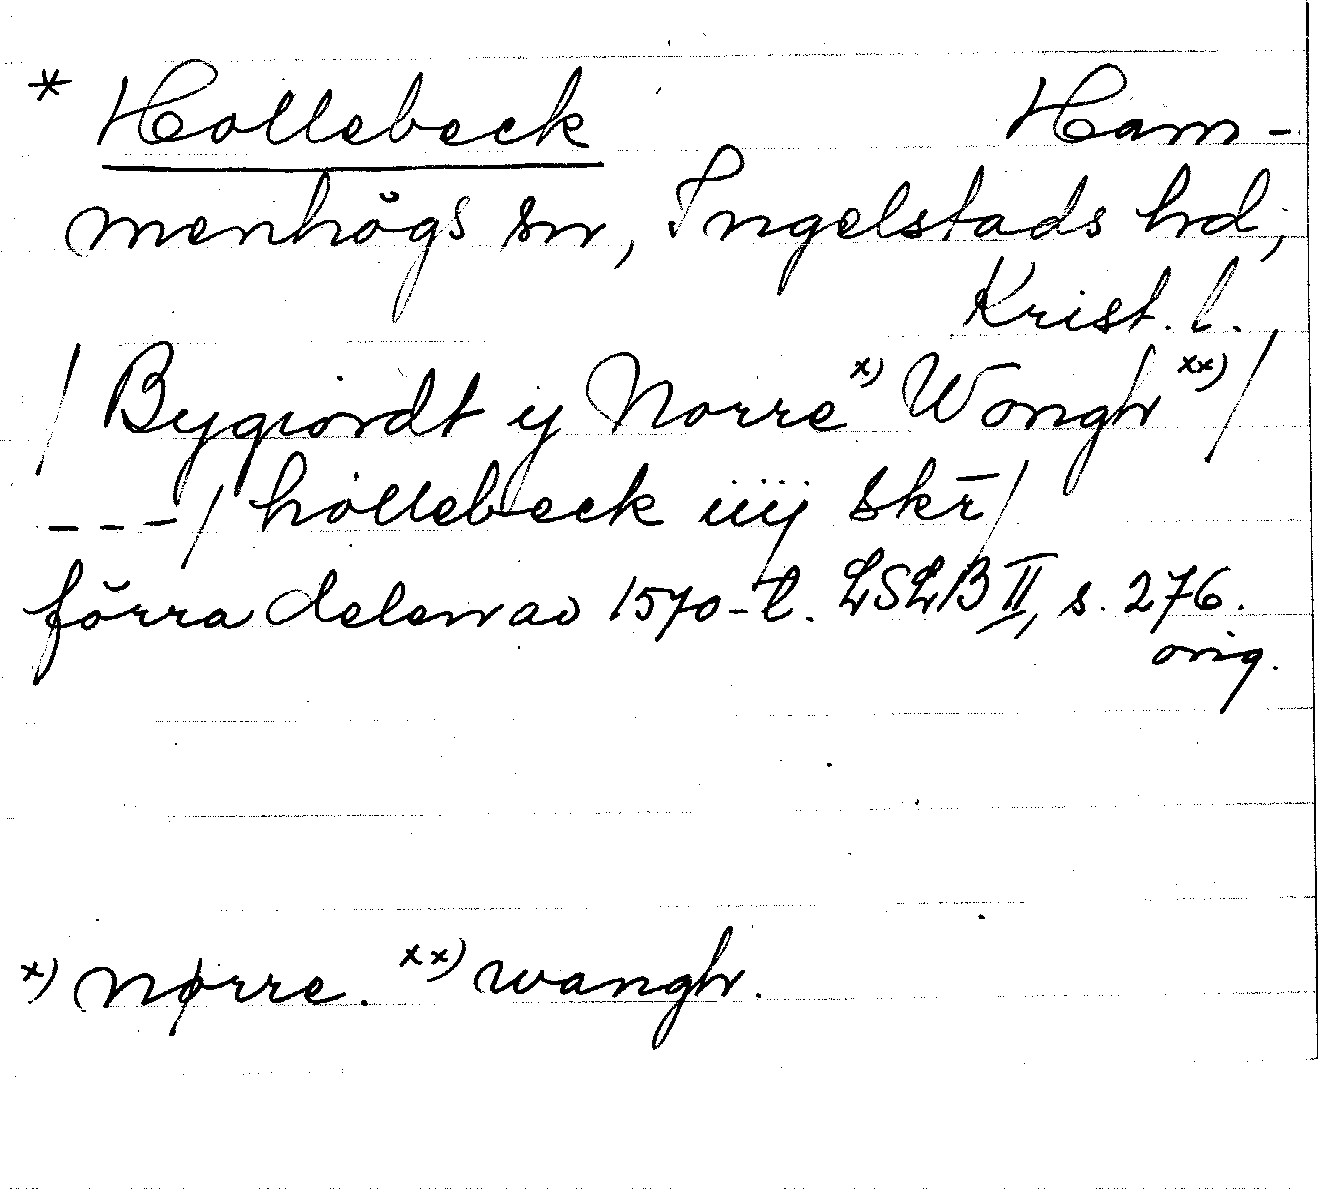 * Hollebeck Ham-
menhögs sn, Ingelstads hd,
Krist. l.
/ Bygiordt ij Norre x) Wongh xx) /
---/ hollebeck iiij skr̄ /
förra delen av 1570-t. LSLB II, s. 276.
orig.
x) Nørre. xx) wangh.